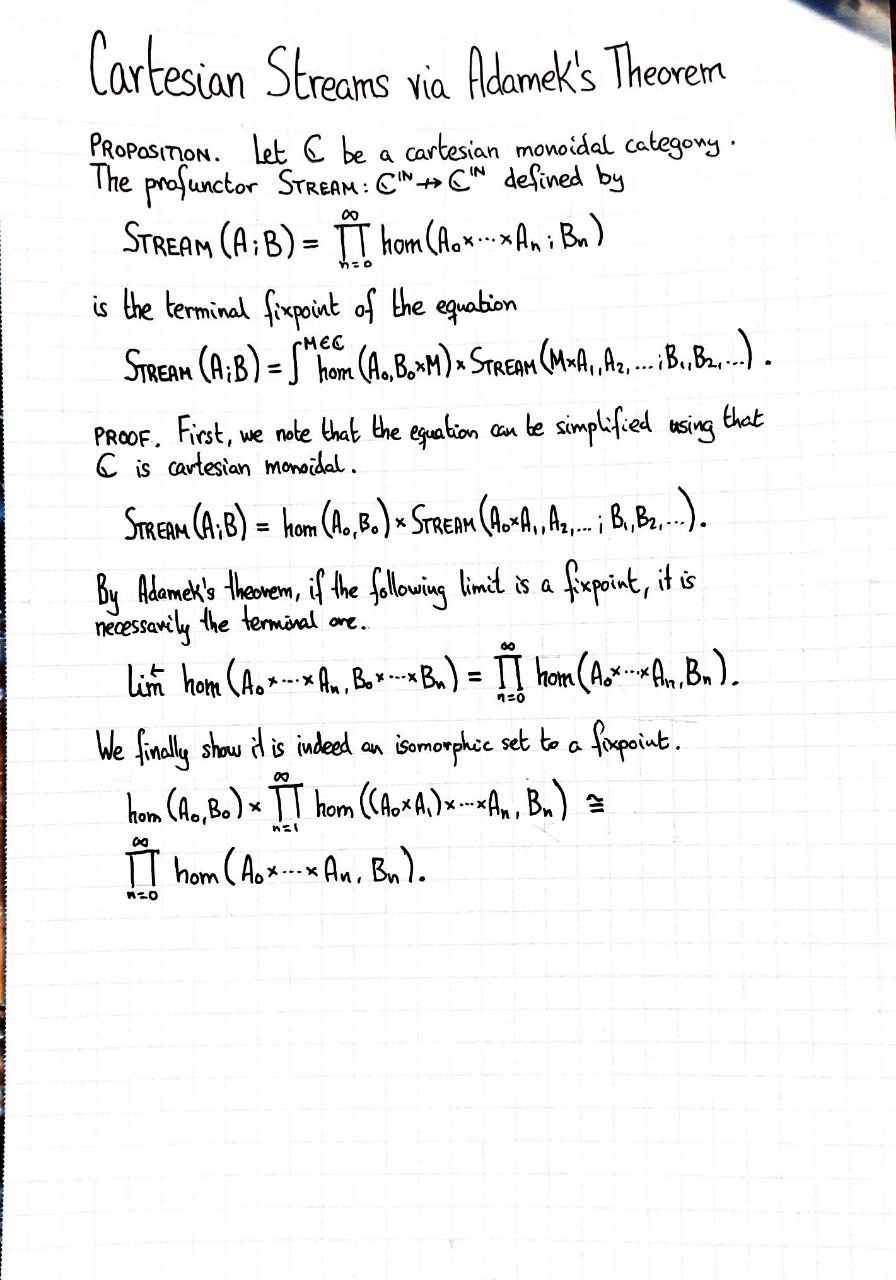 Cartesian Streams via Adamek's Theorem
PROPOSITION. Let ℂ be a cartesian monoidal category.
The profunctor STREAM : ℂ^ℕ ⇸ ℂ^ℕ defined by
STREAM (A;B) = ∏_{n=0}^{∞} hom(A₀×⋯×Aₙ ; Bₙ)
is the terminal fixpoint of the equation
STREAM (A;B) = ∫^{M∈ℂ} hom (A₀,B₀×M) × STREAM (M×A₁,A₂,...;B₁,B₂,...).
PROOF. First, we note that the equation can be simplified using that
ℂ is cartesian monoidal.
STREAM (A;B) = hom (A₀,B₀) × STREAM (A₀×A₁,A₂,...; B₁,B₂,...).
By Adamek's theorem, if the following limit is a fixpoint, it is
necessarily the terminal one.
lim← hom (A₀×⋯×Aₙ, B₀×⋯×Bₙ) = ∏_{n=0}^{∞} hom (A₀×⋯×Aₙ,Bₙ).
We finally show it is indeed an isomorphic set to a fixpoint.
hom (A₀,B₀) × ∏_{n=1}^{∞} hom ((A₀×A₁)×⋯×Aₙ, Bₙ) ≅
∏_{n=0}^{∞} hom (A₀×⋯×Aₙ, Bₙ).